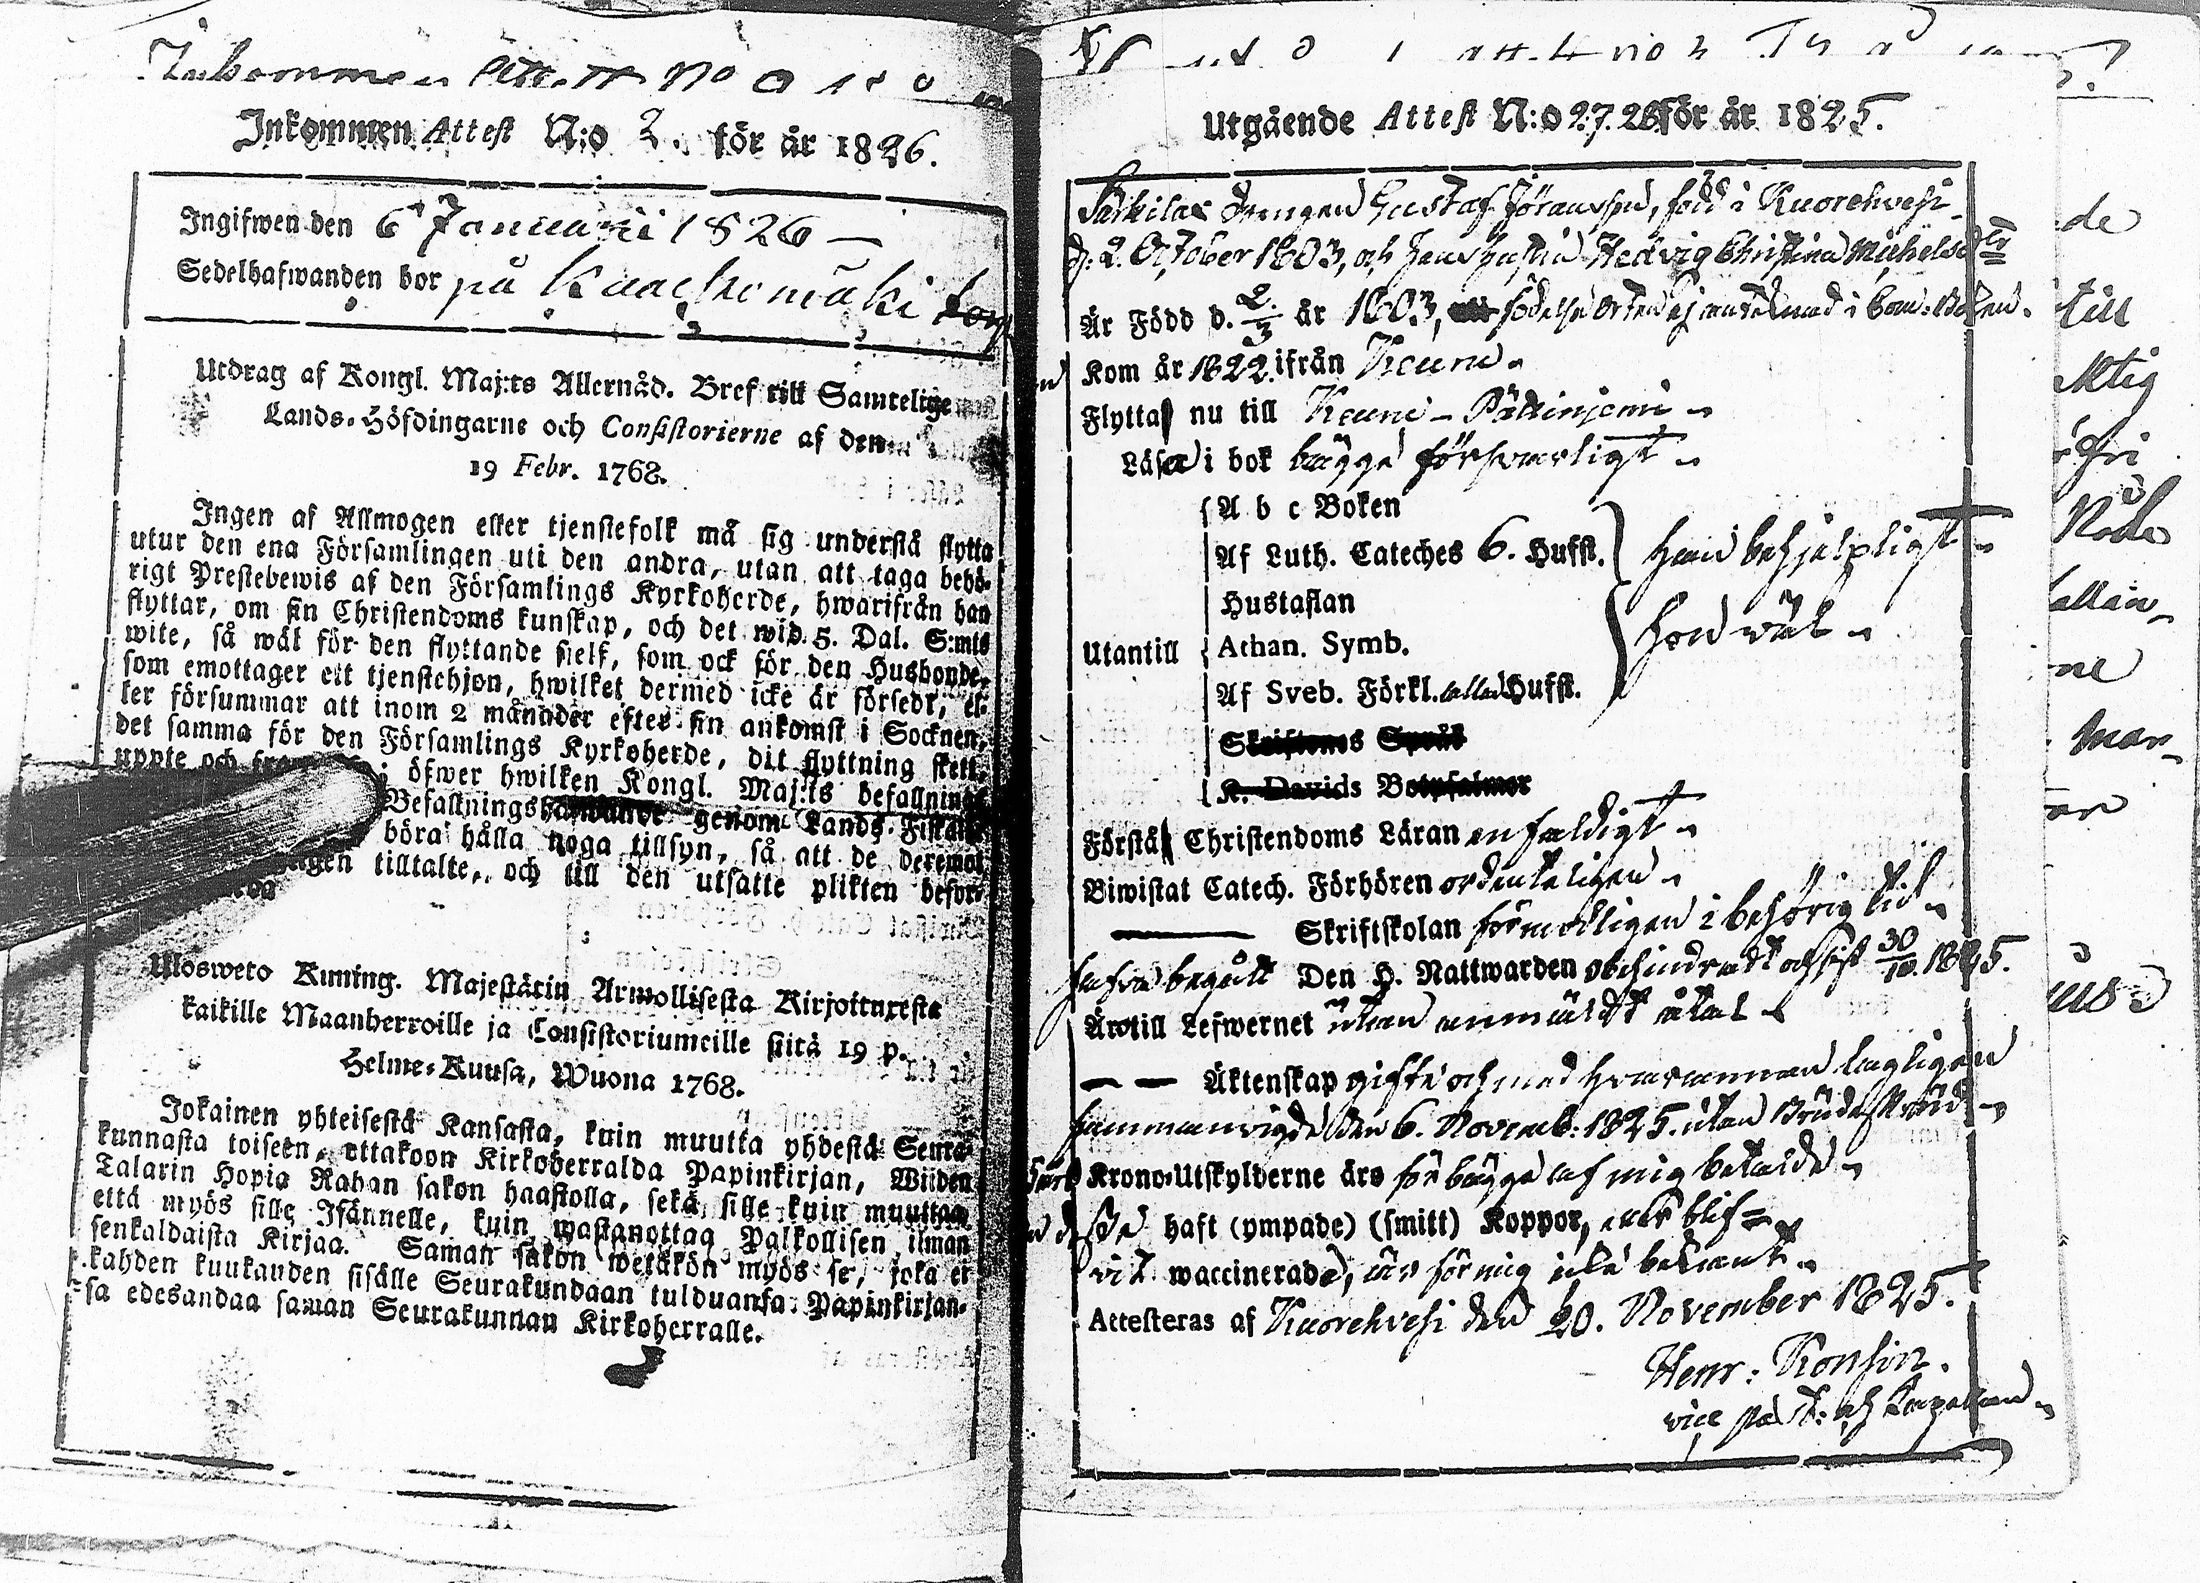 Inkommen Attest N:o 2. för år 1826.
Ingifwen den 6 Januarii 1826 —
Sedelhafwanden bor på Kaackomäki torp
Utdrag af Kongl. Maj:ts Allernåd. Bref till Samtelige
Lands-Höfdingarne och Consistorierne af den
19 Febr. 1768.
Ingen af Allmogen eller tjenstefolk må sig understå flytta
utur den ena Församlingen uti den andra, utan att taga behö-
rigt Prestebewis af den Församlings Kyrkoherde, hwarifrån han
flyttar, om sin Christendoms kunskap, och det wid 5. Dal. S:mts
wite, så wäl för den flyttande sielf, som ock för den Husbonde,
som emottager ett tjenstehjon, hwilket dermed icke är försedt, el-
ler försummar att inom 2 månader efter sin ankomst i Socknen,
det samma för den Församlings Kyrkoherde, dit flyttning skett,
uppte och öfwer hwilken Kongl. Maj:ts befallnings
Befallningshafwande genom Lands-Fiskaler
böra hålla noga tillsyn, så att de deremot
tilltalte, och till den utsatte plikten befor-
Ulosweto Kuning. Majestätin Armollisesta Kirjoituxesta
kaikille Maanherroille ja Consistoriumeille siitä 19 p.
Helme-Kuusa, Wuona 1768.
Jokainen yhteisestä Kansasta, kuin muutta yhdestä Seura-
kunnasta toiseen, ottakoon Kirkoherralda Papinkirjan, Wiiden
Talarin Hopia Rahan sakon haastolla, sekä sille kuin muuttaa,
että myös sille Isännelle, kuin wastanottaa Palkollisen ilman
senkaldaista Kirjaa. Saman sakon wetäkön myös se, joka ei
kahden kuukauden sisälle Seurakundaan tulduansa Papinkirjan-
sa edesandaa saman Seurakunnan Kirkoherralle.
Utgående Attest N:o 27. 28 för år 1825.
Drengen Gustaf Göransson, född i Kuorehvesi
d. 2. October 1803, och hans hustru Hedvig Christina Michelsdr
Är Född d. 2/3 år 1803, födelse Orten ej antecknad i Com: Boken.
Kom år 1822 ifrån Keuru.
Flytta nu till Keuru – Pihlinjemi
Läsa i bok bägge försvarligt
Utantill
A b c Boken
Af Luth. Cateches 6. Hufst. han behjelpligt
Hustaflan
Athan. Symb. hon väl
Af Sveb. Förkl. alla Hufst.
Skriftenes Språk
K. Davids Botpsalmer
Förstå Christendoms Läran enfaldigt
Biwistat Catech. Förhören ordenteligen
Skriftskolan förmodligen i behörig tid
hafva begått Den H. Nattwarden obehindradt och sist 30/10 1825.
Äro till Lefwernet utan anmäldt åtal
— — Äktenskap gifte och med hvarannan lagligen
sammanvigde den 6. Novemb: 1825. utan Brudeskrud
Krono-Utskylderne äro för bägge af mig betalde
haft (ympade) (smitt) Koppor, eller blif=
vit waccinerade, är för mig icke bekant
Attesteras af Kuorehvesi den 20. November 1825.
Henr: Konsin.
vice past: och Capellan
de
till
ne